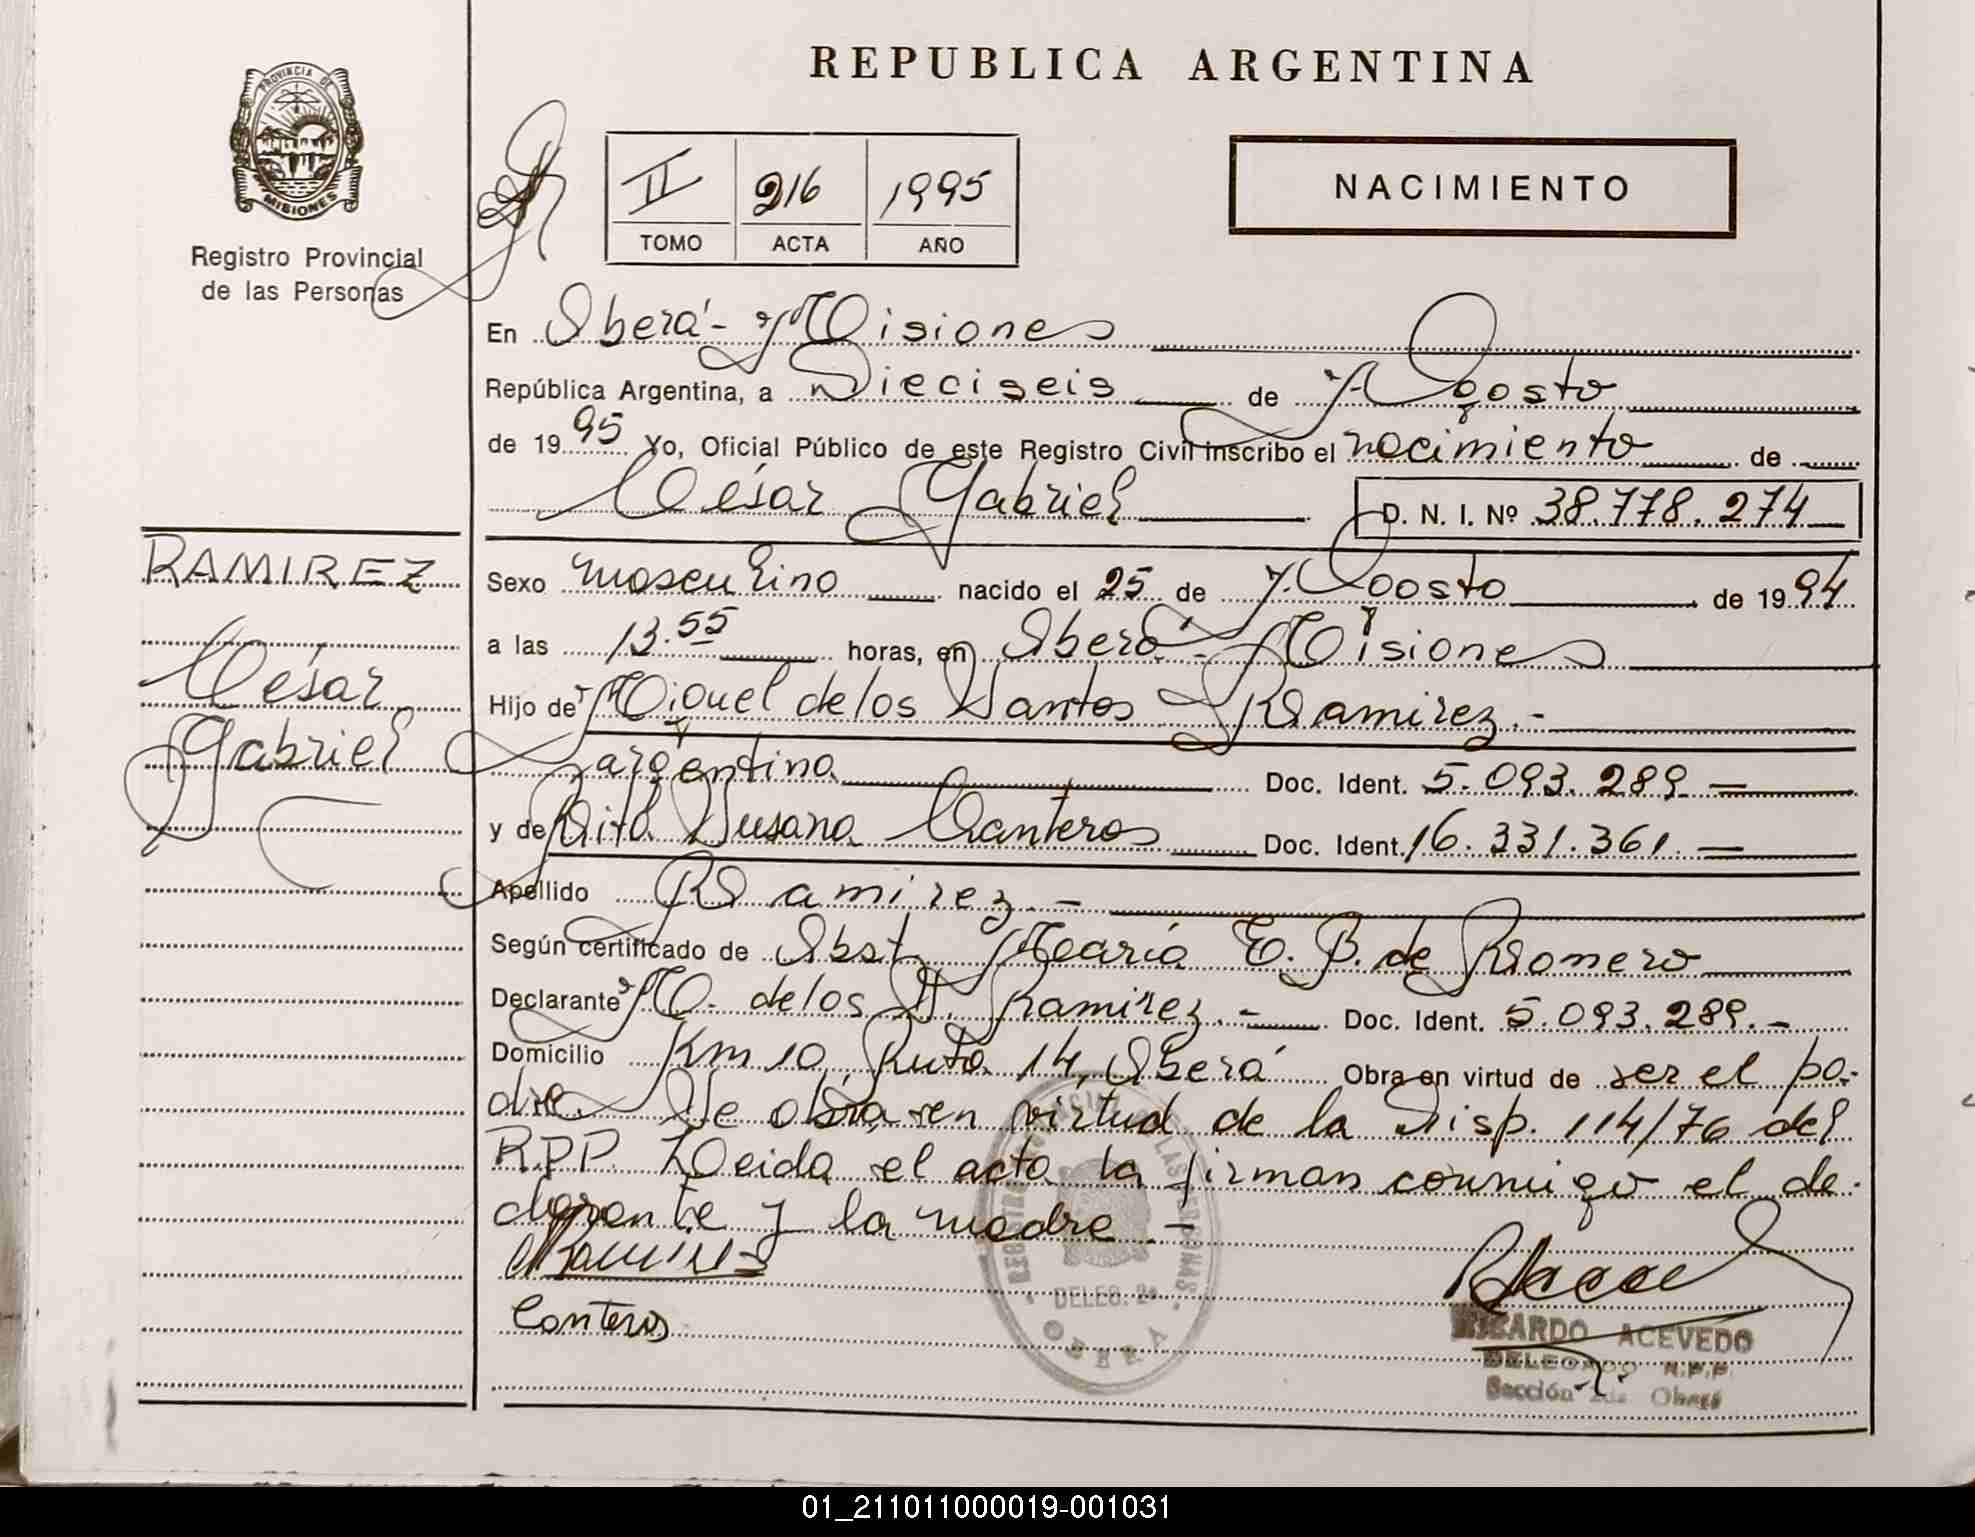 REPUBLICA ARGENTINA
PROVINCIA DE
MISIONES
Registro Provincial
de las Personas
II 216 1995
TOMO ACTA AÑO
NACIMIENTO
En Oberá - Misiones
República Argentina, a Dieciseis de Agosto
de 1995 Yo, Oficial Público de este Registro Civil inscribo el nacimiento de
César Gabriel D. N. I. Nº 38.778.274
RAMIREZ
César
Gabriel
Sexo masculino nacido el 25 de Agosto de 1994
a las 13.55 horas, en Oberá - Misiones
Hijo de Miguel de los Santos Ramirez.-
argentina Doc. Ident. 5.093.289
y de Rita Susana Canteros Doc. Ident. 16.331.361
Apellido Ramirez.-
Según certificado de Obst. María E. B. de Romero
Declarante M. de los S. Ramirez.- Doc. Ident. 5.093.289.-
Domicilio Km 10, Ruta 14, Oberá Obra en virtud de ser el pa-
dre. Se obra en virtud de la Disp. 114/76 del
R.P.P. Leida el acta la firman conmigo el de-
clarante y la madre -
Ramirez
Canteros
REGISTRO PROVINCIAL DE LAS PERSONAS
DELEG. 2ª
OBERA
RICARDO ACEVEDO
DELEGADO R.P.P.
Sección 2da Oberá
01_211011000019-001031